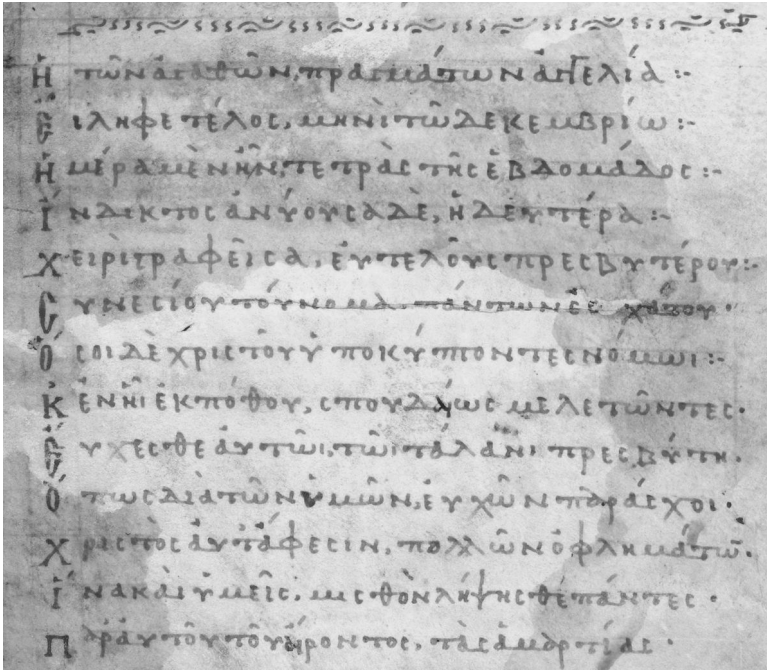 Ἡ τῶν ἀγαθῶν, πραγμάτων ἀγγελία :-
Εἴληφε τέλος, μηνὶ τῶ Δεκεμβρίω :-
Ἡμέρα μὲν ἦν, τετρὰς τῆς ἑβδομάδος :-
Ἴνδικτος ἀνύουσα δὲ, ἡ δευτέρα :-
Χειρὶ γραφεῖσα, εὐτελοῦς πρεσβυτέρου :-
Συνεσίου τοὔνομα. πάντων ἐσχάτου ·
Ὅσοι δὲ χριστοῦ ὑποκύπτοντες νόμωι :-
Κἐν ἧι ἐκ πόθου, σπουδαίως μελετῶντες ·
Εὔχεσθε αὐτῶι, τῶι τάλανι πρεσβύτη.
Ὅπως διὰ τῶν ὑμῶν, εὐχῶν παράσχοι ·
Χριστὸς αὐτῶ ἄφεσιν, πολλῶν ὀφλημάτω̅.
Ἵνα καὶ ὑμεῖς, μισθὸν λήψησθε πάντες ·
Παρ' αὐτοῦ τοῦ αἴροντος, τὰς ἁμαρτίας ·